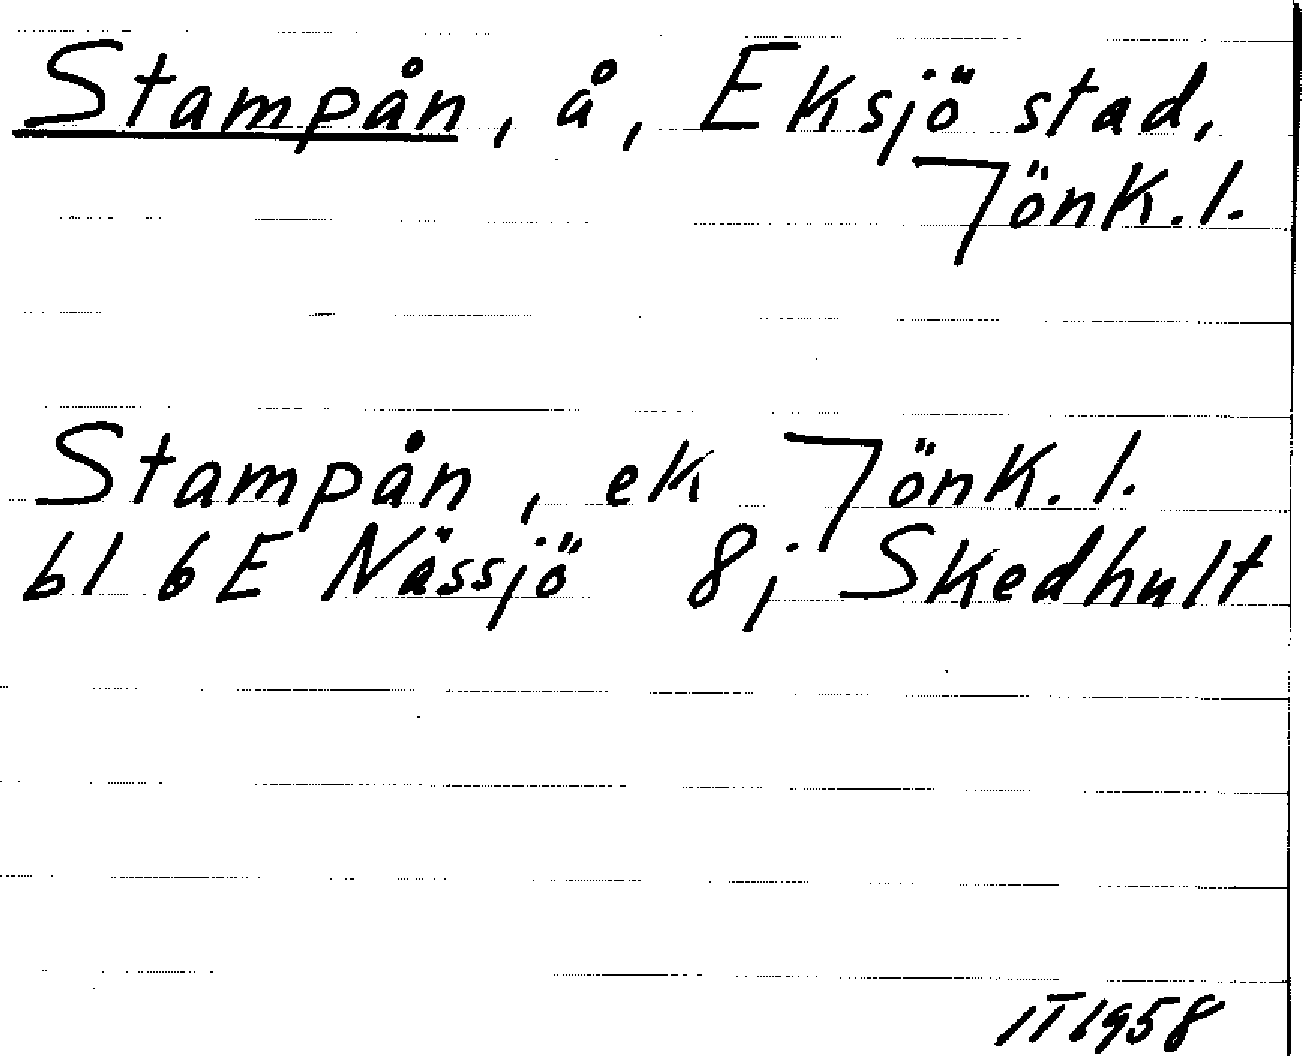 Stampån, å, Eksjö stad,
Jönk.l.
Stampån, ek Jönk.l.
bl 6E Nässjö 8; Skedhult
IT1958